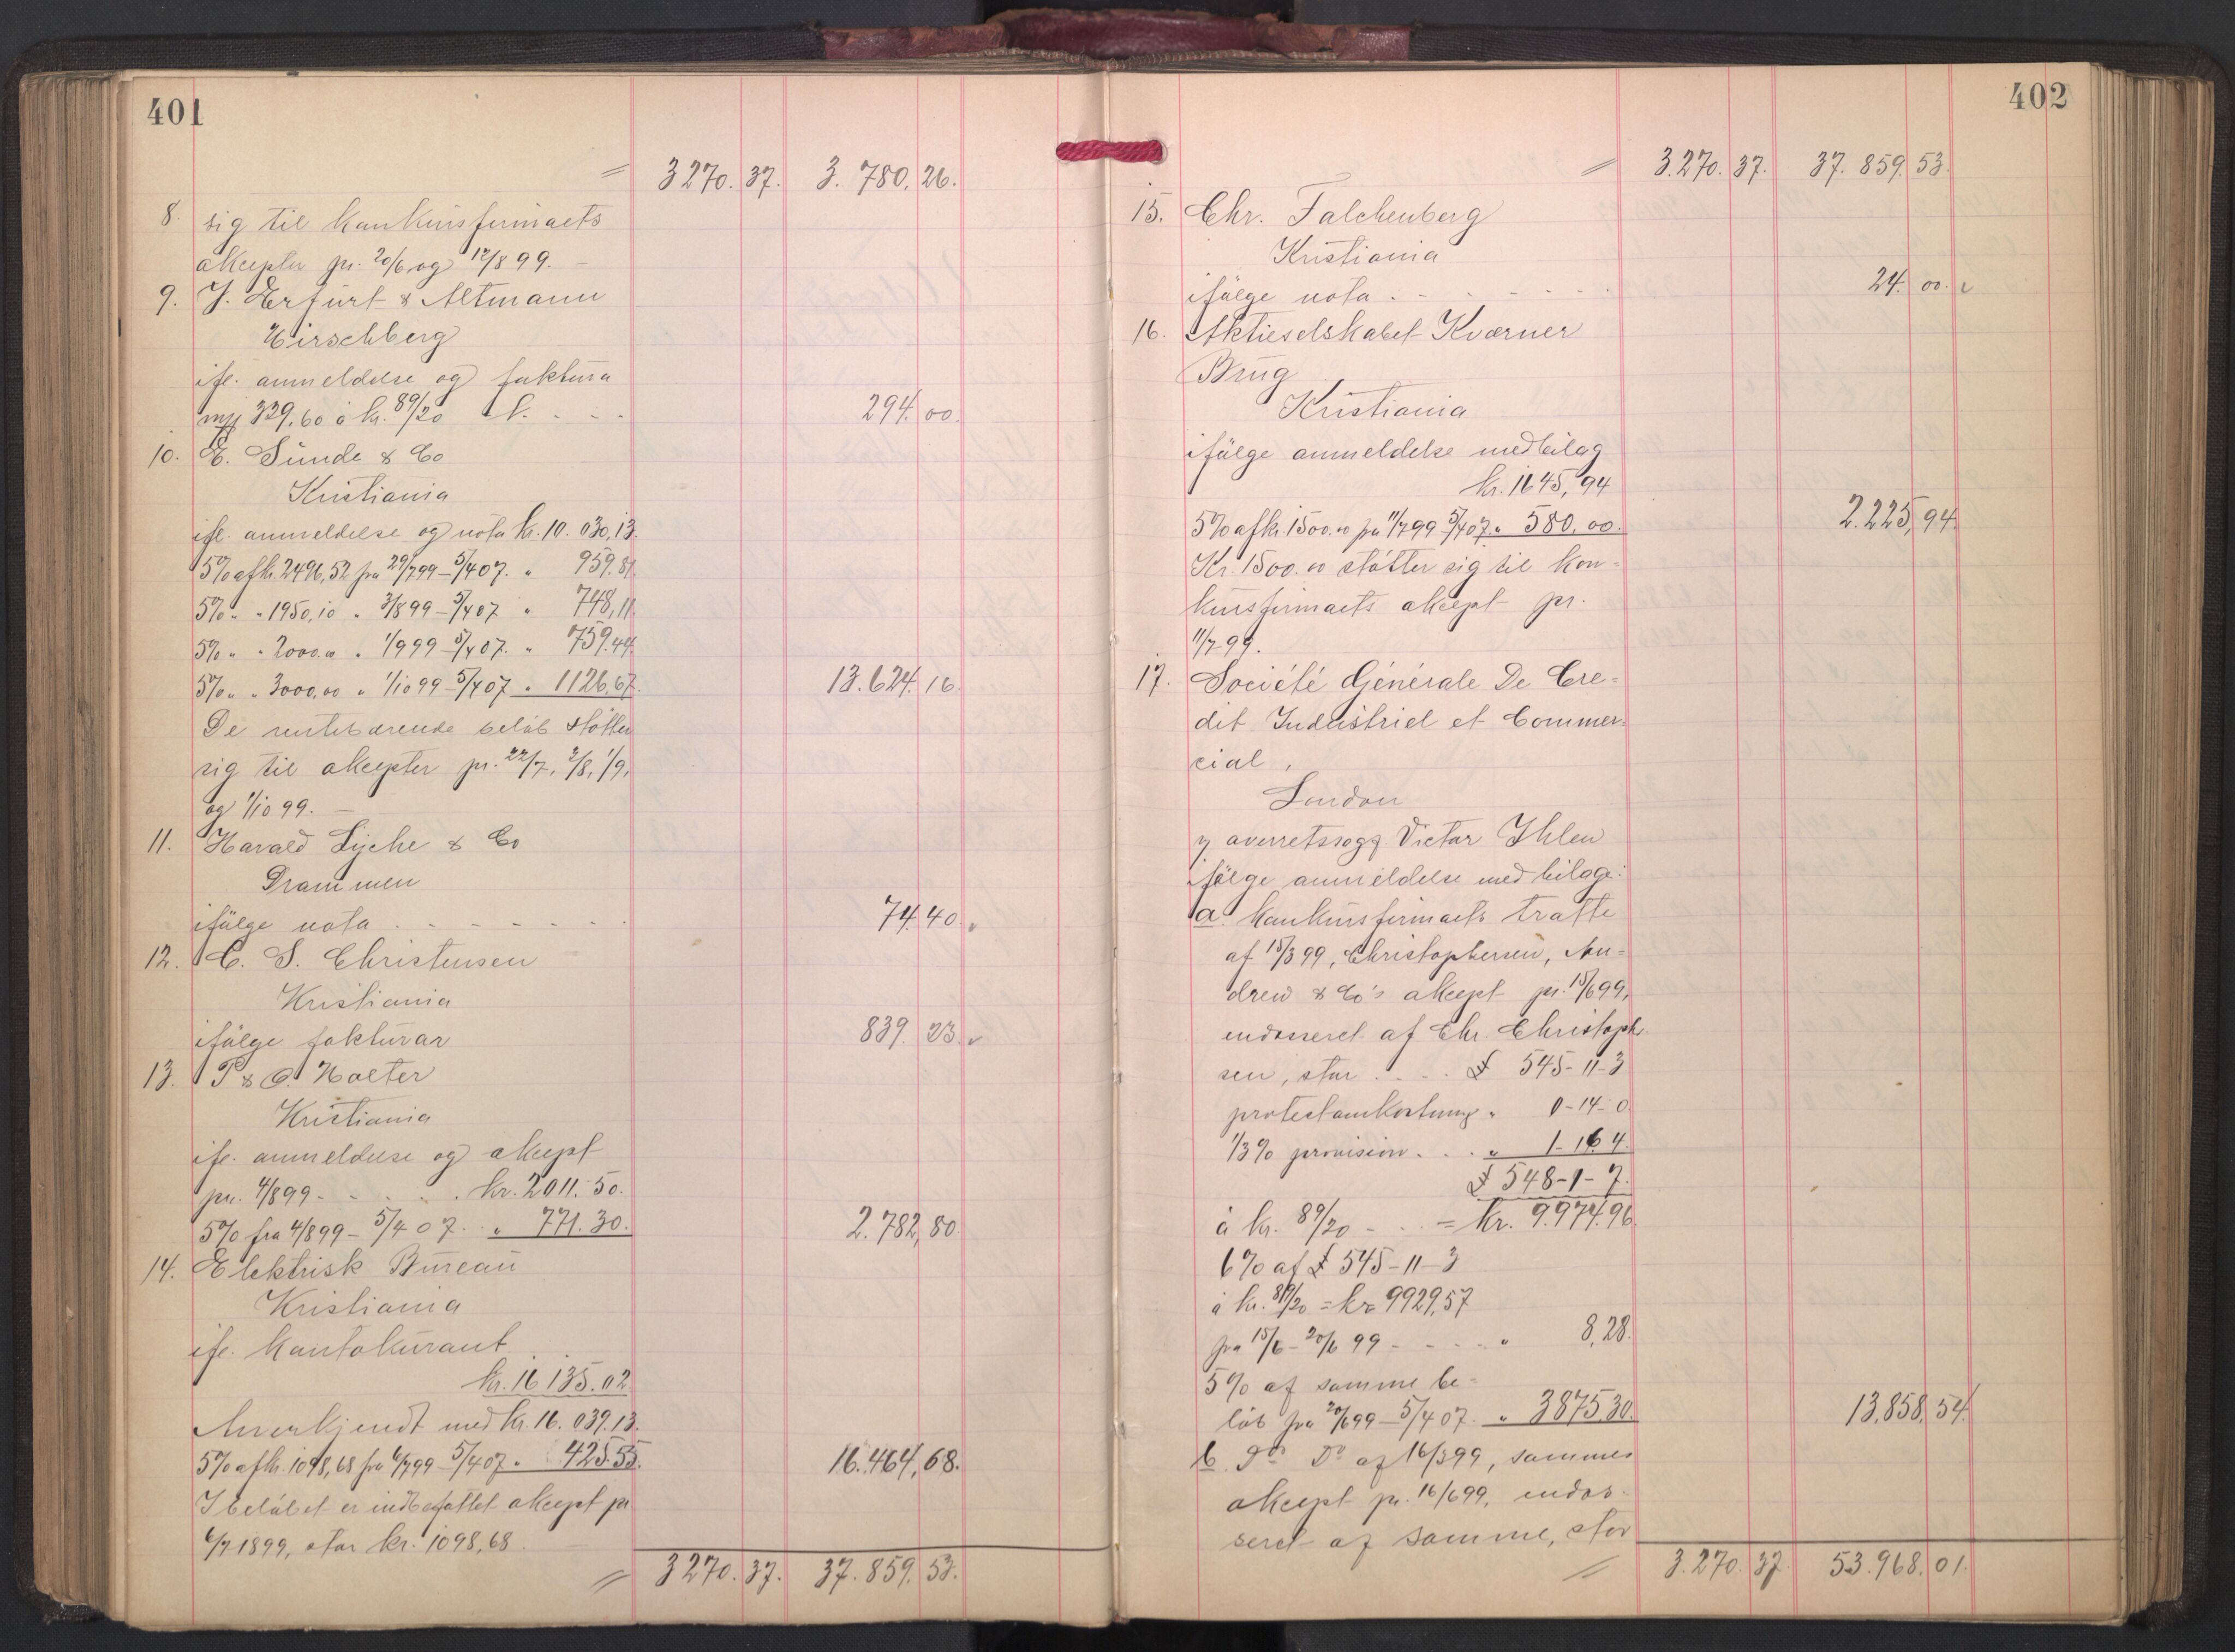 401
= 3270. 37. 3. 780. 26.
8. sig til konkursfirmaets
akcepter pr. 20/6 og 12/8 99. –
9. J. Erfurt & Altmann
Hirschberg
ifl. anmeldelse og faktura
339.60 à kr. 89/20 294. 00.
10. E. Sunde & Co
Kristiania
ifl. anmeldelse og nota kr. 10. 030,13.
5% af kr. 2496,52 fra 29/7 99 – 5/4 07. " 959.81.
5% " " 1950,10 " 3/8 99 – 5/4 07 " 748,11.
5% " " 2000.00 " 1/9 99 – 5/4 07. " 759.44.
5% " " 3000,00 " 1/10 99 – 5/4 07 " 1126,67. 13.624. 16.
De rentebærende beløb støtter
sig til akcepter pr. 22/7, 3/8, 1/9,
og 1/10 99. –
11. Harald Lyche & Co
Drammen
ifølge nota . - - - - - - 74. 40.
12. C. S. Christensen
Kristiania
ifølge fakturar 839. 23.
13. P & O. Holter
Kristiania
ifl. anmeldelse og akcept
pr. 4/8 99 - - - - . kr. 2011. 50.
5% fra 4/8 99 – 5/4 07. " 771. 30. 2.782, 80.
14. Elektrisk Bureau
Kristiania
ifl. kontokurant
kr. 16 135.02
Anerkjendt med kr. 16. 039.13.
5% af kr. 1098,68 fra 6/7 99 – 5/4 07. " 425.55. 16.464, 68.
I beløbet er indbefattet akcept pr
6/7 1899, stor kr. 1098,68.
= 3270. 37. 37. 859. 53.
402
= 3.270. 37. 37. 859. 53.
15. Chr. Falchenberg
Kristiania
ifølge nota . - - - - - 24. 00.
16. Aktieselskabet Kværner
Brug
Kristiania
ifølge anmeldelse med bilag
kr. 1645,94
5% af kr. 1500.00 fra 11/7 99 5/4 07. " 580,00. 2.225, 94.
Kr. 1500.00 støtter sig til kon-
kursfirmaets akcept pr.
11/7 99.
17. Société Générale De Cre-
dit Industriel et Commer-
cial,
London
v overretssagf. Victor Ihlen
ifølge anmeldelse med bilage:
a. konkursfirmaets tratte
af 15/3 99, Christophersen, An-
drew & Co's akcept pr. 15/6 99,
endosseret af Chr. Christopher-
sen, stor . . . . £ 545-11-3
protestomkostning " 0-14-0.
1/3% provision . . . " 1-16 4.
£ 548-1-7.
à kr. 89/20 - . . = kr. 9.974.96.
6% af £ 545-11-3
à kr. 89/20 = kr 9929,57
fra 15/6 – 20/6 99 - - - - " 8,28.
5% af samme be-
løb fra 20/6 99 – 5/4 07. " 3875.30. 13.858. 54.
b. Do Do af 16/3 99, sammes
akcept pr. 16/6 99, endos-
seret af samme, stor
= 3.270. 37. 53.968. 01.